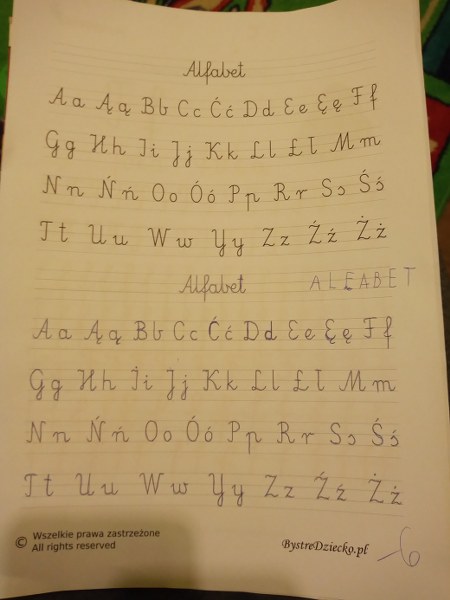 Alfabet
Aa Ąą Bb Cc Ćć Dd Ee Ęę Ff
Gg Hh Ii Jj Kk Ll Łł Mm
Nn Ńń Oo Óó Pp Rr Ss Śś
Tt Uu Ww Yy Zz Źź Żż
Alfabet ALFABET
Aa Ąą Bb Cc Ćć Dd Ee Ęę Ff
Gg Hh Ii Jj Kk Ll Łł Mm
Nn Ńń Oo Óó Pp Rr Ss Śś
Tt Uu Ww Yy Zz Źź Żż
© Wszelkie prawa zastrzeżone
All rights reserved
BystreDziecko.pl